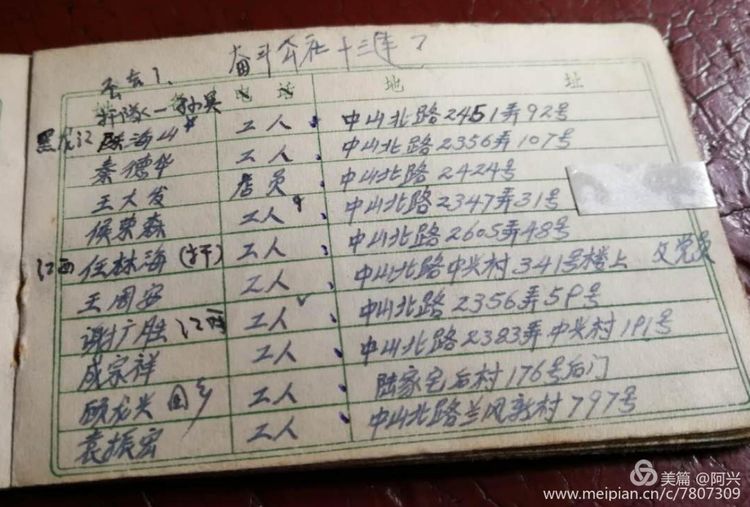 奋斗公社十三连
地 址
黑龙江 陈海山 工人 中山北路2451弄92号
秦德华 工人 中山北路2356弄107号
王大发 店员 中山北路2424号
侯荣森 工人 中山北路2347弄31号
江西 任林海 工人 中山北路2605弄48号
王周安 工人 中山北路中兴村341号楼上 父党员
谢扩胜 江西 工人 中山北路2356弄59号
成宗祥 工人 中山北路2383弄中兴村191号
顾龙兴 回乡 工人 陆家宅后村176号后门
袁振宏 工人 中山北路兰凤新村797号
美篇 @阿兴
www.meipian.cn/c/7807309